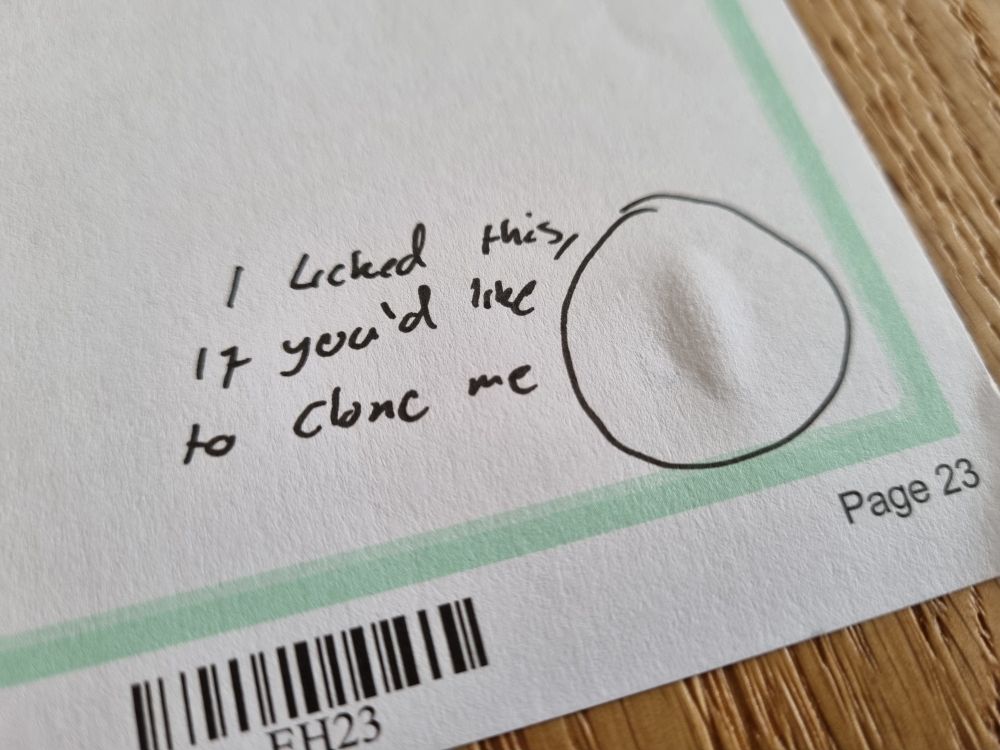 I Licked this,
If you'd like
to clone me
Page 23
EH23